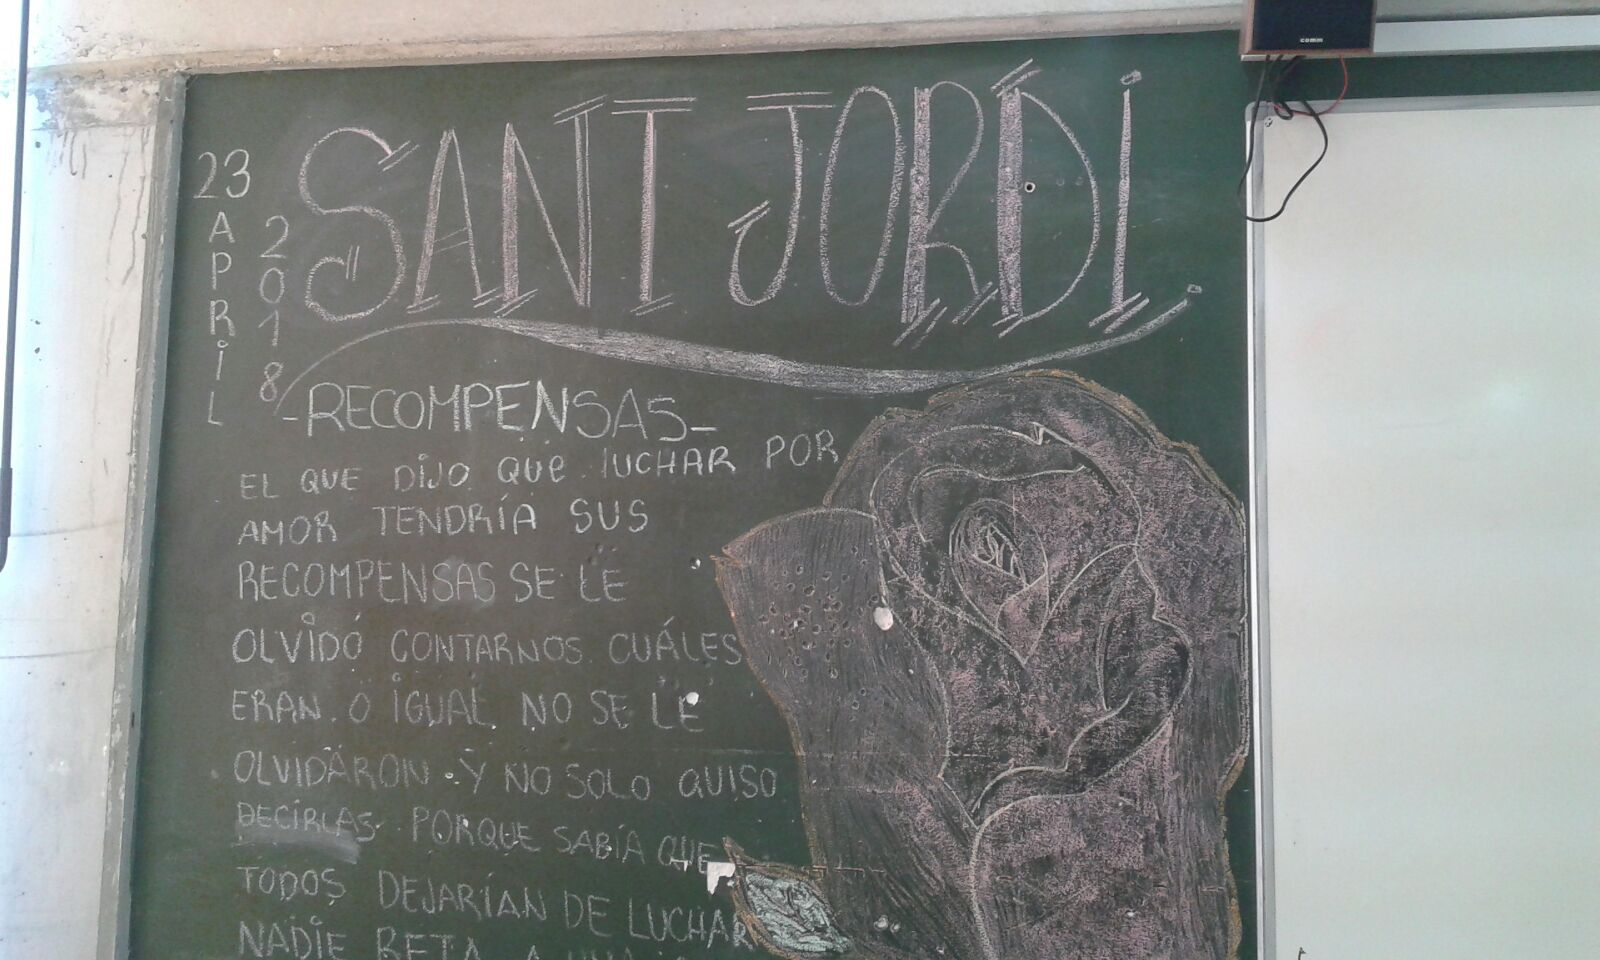 SANT JORDI
23
APRIL
2018
-RECOMPENSAS-
EL QUE DIJO QUE LUCHAR POR
AMOR TENDRÍA SUS
RECOMPENSAS SE LE
OLVIDÓ CONTARNOS CUÁLES
ERAN. O IGUAL NO SE LE
OLVIDARON. Y NO SOLO QUISO
DECIRLAS. PORQUE SABÍA QUE
TODOS DEJARÍAN DE LUCHAR
NADIE RETA A